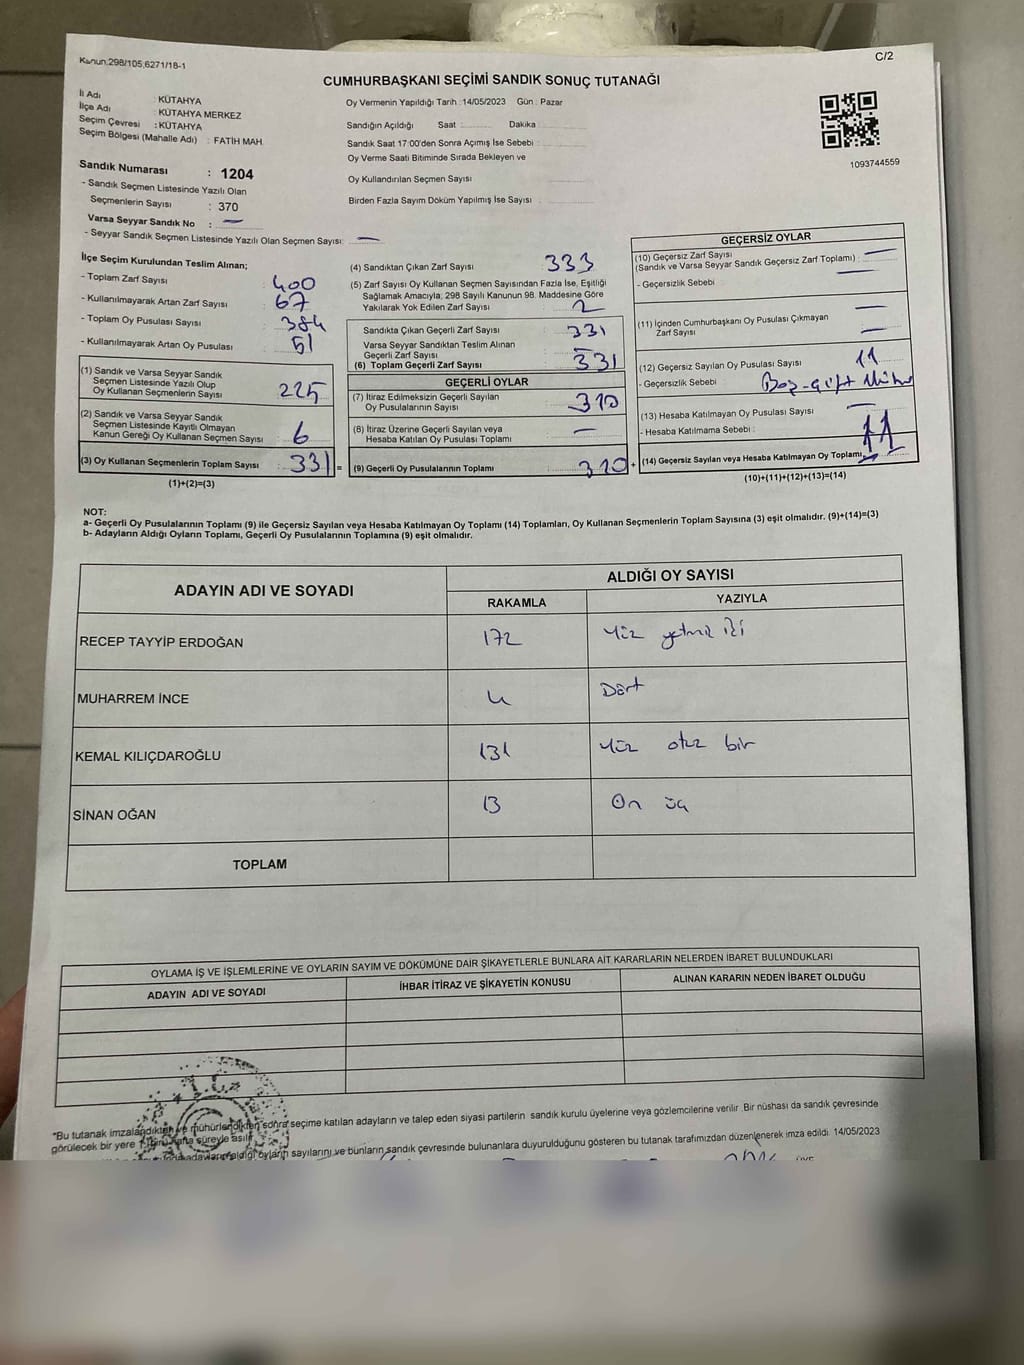 Kanun:298/105;6271/18-1
C/2
CUMHURBAŞKANI SEÇİMİ SANDIK SONUÇ TUTANAĞI
İl Adı : KÜTAHYA
İlçe Adı : KÜTAHYA MERKEZ
Seçim Çevresi : KÜTAHYA
Seçim Bölgesi (Mahalle Adı) : FATİH MAH.
Oy Vermenin Yapıldığı Tarih : 14/05/2023 Gün : Pazar
Sandığın Açıldığı Saat : Dakika :
Sandık Saat 17:00'den Sonra Açımış İse Sebebi :
Oy Verme Saati Bitiminde Sırada Bekleyen ve
Oy Kullandırılan Seçmen Sayısı
Birden Fazla Sayım Döküm Yapılmış İse Sayısı :
1093744559
Sandık Numarası : 1204
- Sandık Seçmen Listesinde Yazılı Olan
Seçmenlerin Sayısı : 370
Varsa Seyyar Sandık No : —
- Seyyar Sandık Seçmen Listesinde Yazılı Olan Seçmen Sayısı: —
İlçe Seçim Kurulundan Teslim Alınan;
- Toplam Zarf Sayısı : 400
- Kullanılmayarak Artan Zarf Sayısı : 67
- Toplam Oy Pusulası Sayısı : 384
- Kullanılmayarak Artan Oy Pusulası : 51
(1) Sandık ve Varsa Seyyar Sandık
Seçmen Listesinde Yazılı Olup
Oy Kullanan Seçmenlerin Sayısı : 225
(2) Sandık ve Varsa Seyyar Sandık
Seçmen Listesinde Kayıtlı Olmayan
Kanun Gereği Oy Kullanan Seçmen Sayısı : 6
(3) Oy Kullanan Seçmenlerin Toplam Sayısı : 331 =
(1)+(2)=(3)
(4) Sandıktan Çıkan Zarf Sayısı : 333
(5) Zarf Sayısı Oy Kullanan Seçmen Sayısından Fazla İse, Eşitliği
Sağlamak Amacıyla; 298 Sayılı Kanunun 98. Maddesine Göre
Yakılarak Yok Edilen Zarf Sayısı : 2
Sandıkta Çıkan Geçerli Zarf Sayısı : 331
Varsa Seyyar Sandıktan Teslim Alınan
Geçerli Zarf Sayısı : —
(6) Toplam Geçerli Zarf Sayısı : 331
GEÇERLİ OYLAR
(7) İtiraz Edilmeksizin Geçerli Sayılan
Oy Pusulalarının Sayısı : 310
(8) İtiraz Üzerine Geçerli Sayılan veya
Hesaba Katılan Oy Pusulası Toplamı : —
(9) Geçerli Oy Pusulalarının Toplamı : 320 +
GEÇERSİZ OYLAR
(10) Geçersiz Zarf Sayısı
(Sandık ve Varsa Seyyar Sandık Geçersiz Zarf Toplamı) : —
- Geçersizlik Sebebi : —
(11) İçinden Cumhurbaşkanı Oy Pusulası Çıkmayan —
Zarf Sayısı : —
(12) Geçersiz Sayılan Oy Pusulası Sayısı : 11
- Geçersizlik Sebebi : Boş-çift Mühür
(13) Hesaba Katılmayan Oy Pusulası Sayısı : —
- Hesaba Katılmama Sebebi :
(14) Geçersiz Sayılan veya Hesaba Katılmayan Oy Toplamı : 11
(10)+(11)+(12)+(13)=(14)
NOT:
a- Geçerli Oy Pusulalarının Toplamı (9) ile Geçersiz Sayılan veya Hesaba Katılmayan Oy Toplamı (14) Toplamları, Oy Kullanan Seçmenlerin Toplam Sayısına (3) eşit olmalıdır. (9)+(14)=(3)
b- Adayların Aldığı Oyların Toplamı, Geçerli Oy Pusulalarının Toplamına (9) eşit olmalıdır.
ADAYIN ADI VE SOYADI ALDIĞI OY SAYISI
RAKAMLA YAZIYLA
RECEP TAYYİP ERDOĞAN 172 Yüz yetmiş iki
MUHARREM İNCE 4 Dört
KEMAL KILIÇDAROĞLU 131 Yüz otuz bir
SİNAN OĞAN 13 On üç
TOPLAM
OYLAMA İŞ VE İŞLEMLERİNE VE OYLARIN SAYIM VE DÖKÜMÜNE DAİR ŞİKAYETLERLE BUNLARA AİT KARARLARIN NELERDEN İBARET BULUNDUKLARI
ADAYIN ADI VE SOYADI İHBAR İTİRAZ VE ŞİKAYETİN KONUSU ALINAN KARARIN NEDEN İBARET OLDUĞU
T.C.
*Bu tutanak imzalandıktan ve mühürlendikten sonra seçime katılan adayların ve talep eden siyasi partilerin sandık kurulu üyelerine veya gözlemcilerine verilir. Bir nüshası da sandık çevresinde
görülecek bir yere 1 hafta süreyle asılır.
oyların sayılarını ve bunların sandık çevresinde bulunanlara duyurulduğunu gösteren bu tutanak tarafımızdan düzenlenerek imza edildi. 14/05/2023